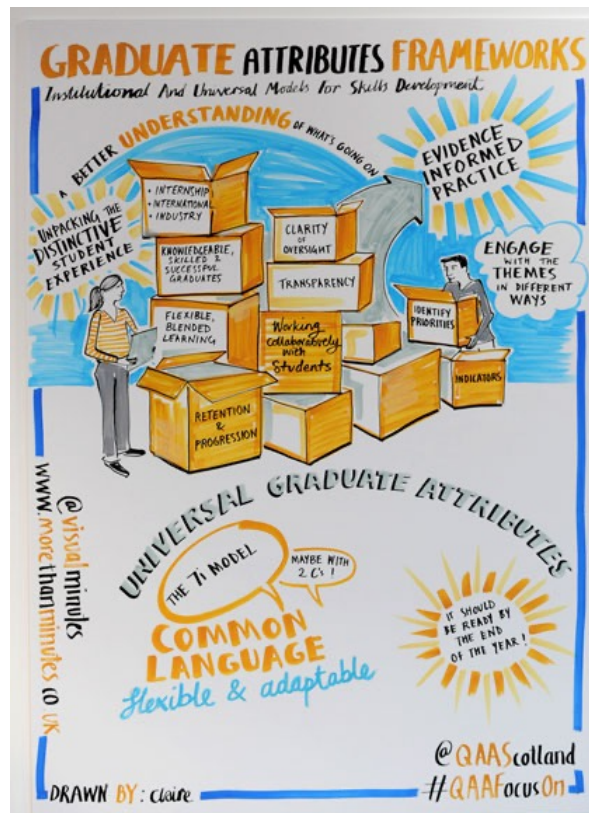 GRADUATE ATTRIBUTES FRAMEWORKS
Institutional And Universal Models For Skills Development
A BETTER UNDERSTANDING OF WHAT'S GOING ON
EVIDENCE
INFORMED
PRACTICE
UNPACKING THE
DISTINCTIVE
STUDENT
EXPERIENCE
• INTERNSHIP
• INTERNATIONAL
• INDUSTRY
KNOWLEDGEABLE,
SKILLED &
SUCCESSFUL
GRADUATES
FLEXIBLE,
BLENDED
LEARNING
RETENTION
&
PROGRESSION
CLARITY
OF
OVERSIGHT
TRANSPARENCY
Working
collaboratively
with
Students
IDENTIFY
PRIORITIES
INDICATORS
ENGAGE
WITH THE
THEMES
IN DIFFERENT
WAYS
UNIVERSAL GRADUATE ATTRIBUTES
THE 7i MODEL
MAYBE WITH
2 C's !
COMMON
LANGUAGE
flexible & adaptable
IT SHOULD
BE READY BY
THE END
OF THE YEAR!
@visualminutes
www.morethanminutes.co.uk
DRAWN BY: Claire
@QAAScotland
#QAAFocusOn